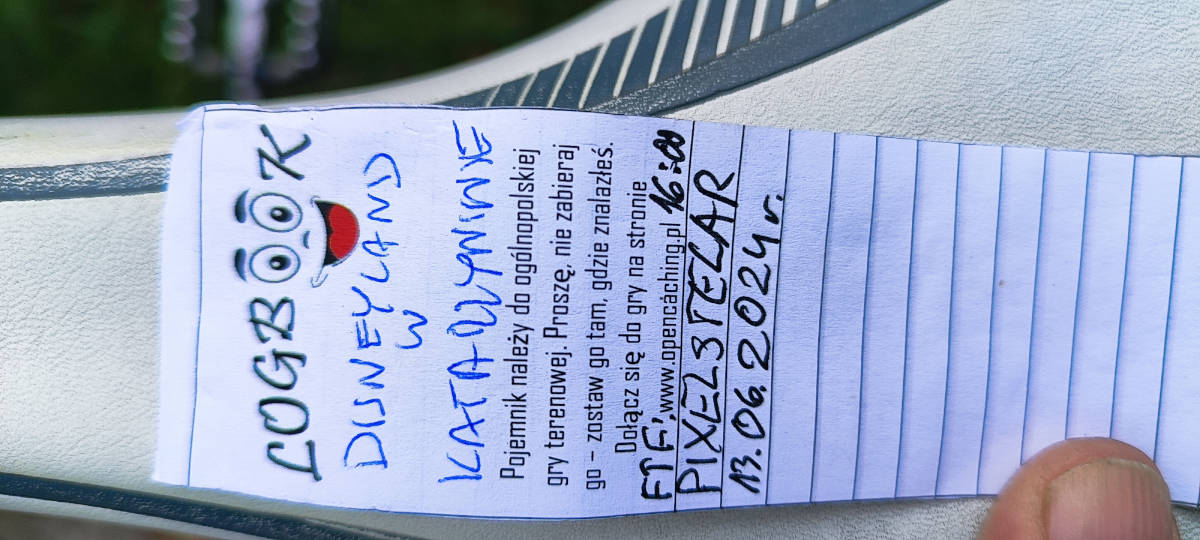 LOGBOOK
DISNEYLAND
W
KATARZYNINIE
Pojemnik należy do ogólnopolskiej
gry terenowej. Proszę, nie zabieraj
go – zostaw go tam, gdzie znalazłeś.
Dołącz się do gry na stronie
www.opencaching.pl
FTF! 16:00
PIXELSTELAR
13.06.2024 r.